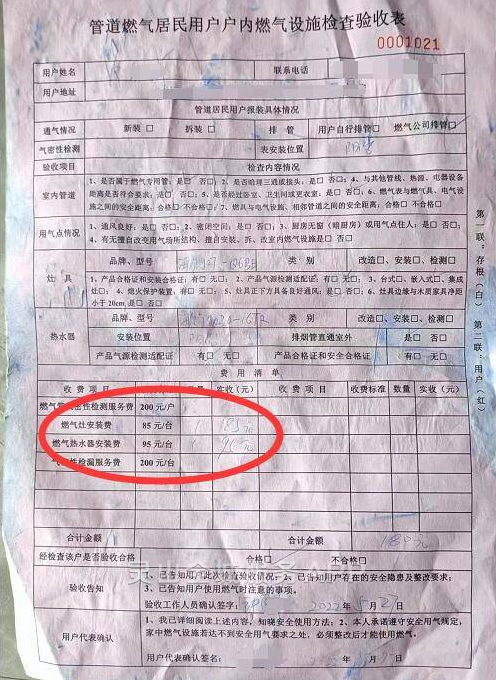 管道燃气居民用户户内燃气设施检查验收表
0001021
用户姓名 联系电话
用户地址
管道居民用户报装具体情况
通气情况 新装□ 拆装□ 排管 用户自行排管□ 燃气公司排管□
气密性检测 表安装位置 阳台
验收项目 检查内容情况
室内管道 1、是否属于燃气专用管：是□ 否□；2、是否暗埋三通或接头：是□ 否□；4、与其他管线、热源、电器设备
距离是否符合要求：是□ 否□；5、是否经过浴室、卫生间或更衣室：是□ 否□；6、燃气表与燃气具、电气设
施之间的安全距离：合格□ 不合格□；7、燃具与电气设施、相邻管道之间的安全距离：合格□ 不合格□
用气点情况 1、通风良好：是□ 否□；2、密闭空间：是□ 否□；3、厨房无窗（暗厨房）或用气点住人：是□ 否□；
4、有无擅自改变用气场所结构、擅自安装、拆、改室内燃气设施是□ 否□
灶具 品牌、型号 类别 改造□、安装□、检测□
1、产品合格证和安装合格证：有□ 无□；2、产品气源检测适配证：有□ 无□；3、台式□、嵌入式□、集成
灶□；4、熄火保护装置：有□ 无□；5、灶具正下方具备良好通风：是□ 否□；6、灶具边缘与木质家具净距
小于20cm 是□ 否□
热水器 品牌、型号 类别 改造□、安装□、检测□
安装位置 排烟管直通室外 是□ 否□
产品气源检测适配证 有□ 无□ 产品合格证和安全合格证 有□ 无□
费用清单
收费项目 实收（元） 收费项目 收费标准 数量 实收（元）
燃气管 密性检测服务费 200元/户
燃气灶安装费 85元/台 1 85元
燃气热水器安装费 95元/台 1 95元
气 性检漏服务费 200元/台
合计金额 合计金额 180元
经检查该户是否验收合格 合格□ 不合格□
验收告知 1、已告知用户此次检查验收情况；2、已告知用户存在的安全隐患及整改要求；
3、已告知用户使用燃气时注意的事项。
验收工作人员确认签字： 2022年5月27日
用户代表确认 1、我已详细阅读上述内容，知晓安全使用方法；2、本人承诺遵守安全用气规定，
家中燃气设施若达不到安全用气要求之处，必须整改后才能使用燃气。
用户代表确认签名： 年 月 日
第一联：存根（白） 第二联：用户（红）